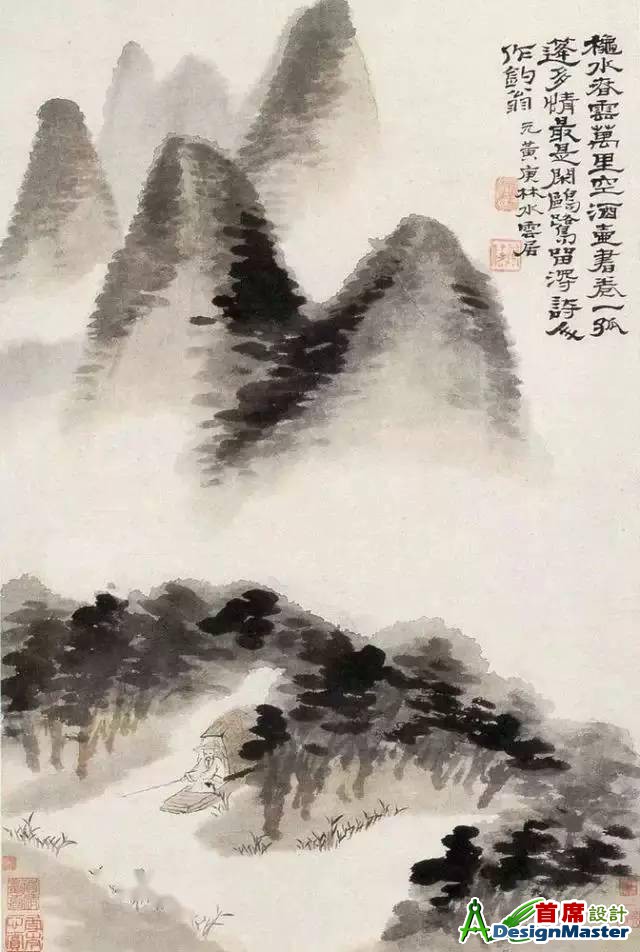 穐水春雲萬里空酒壺書卷一孤
篷多情最是閑鷗鷺留淂詩人
作釣翁 元黃庚林水雲居
首席設計
ADesignMaster